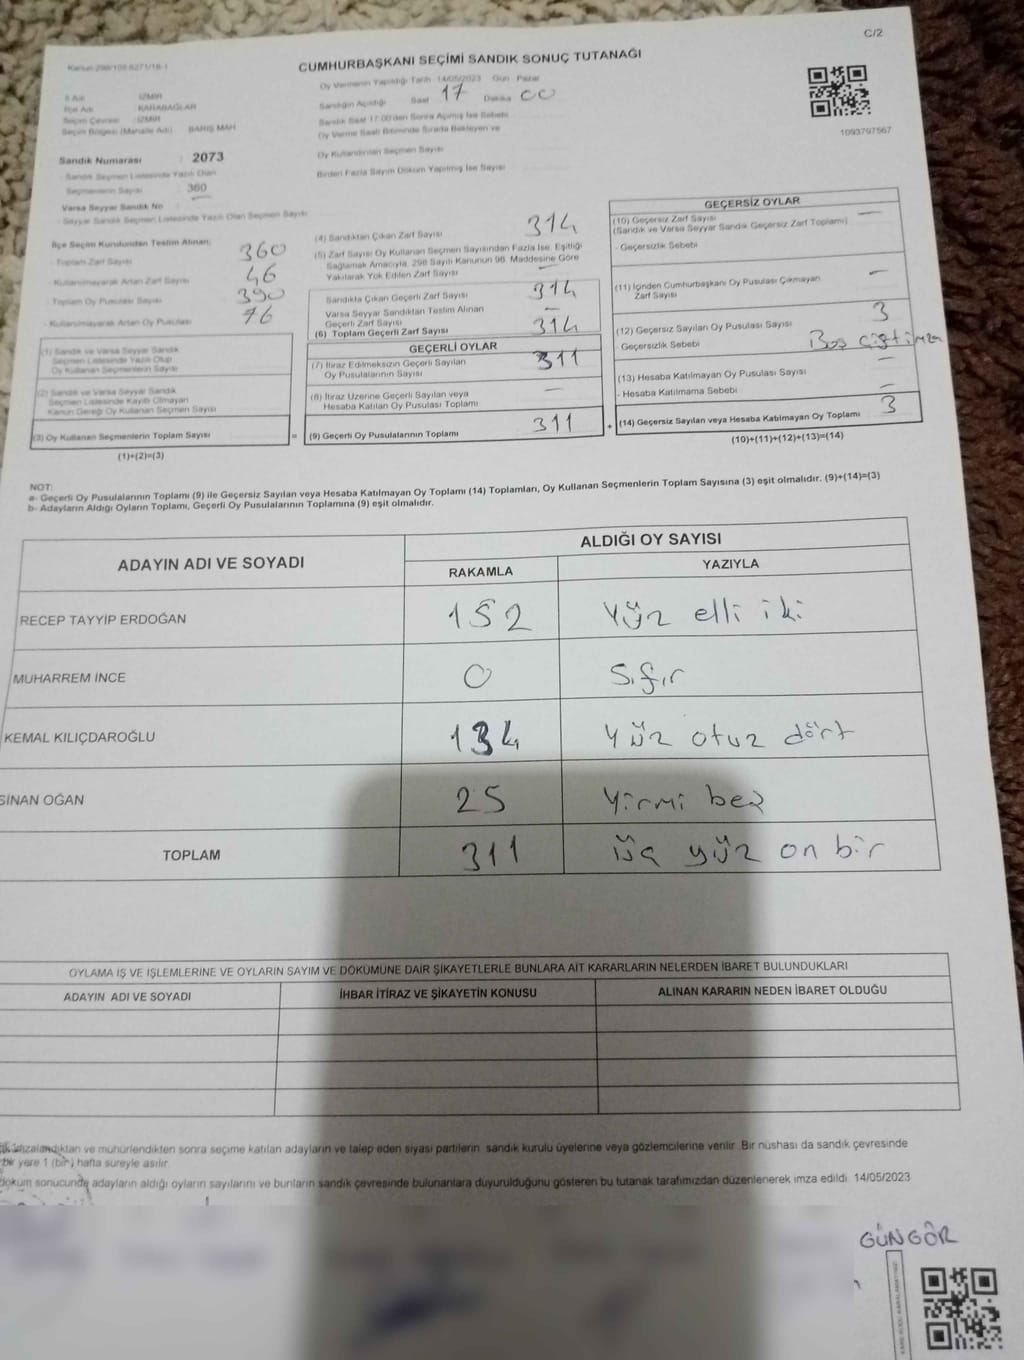 C/2
Kanun 298/105 6271/18-1
CUMHURBAŞKANI SEÇİMİ SANDIK SONUÇ TUTANAĞI
1093797567
İl Adı : İZMİR
İlçe Adı : KARABAĞLAR
Seçim Çevresi : İZMİR
Seçim Bölgesi (Mahalle Adı) : BARIŞ MAH
Sandık Numarası : 2073
Sandık Seçmen Listesinde Yazılı Olan
Seçmenlerin Sayısı : 360
Varsa Seyyar Sandık No
Seyyar Sandık Seçmen Listesinde Yazılı Olan Seçmen Sayısı
Oy Vermenin Yapıldığı Tarih 14/05/2023 Gün Pazar
Sandığın Açıldığı Saat 17 Dakika 00
Sandık Saat 17:00'den Sonra Açılmış İse Sebebi
Oy Verme Saati Bitiminde Sırada Bekleyen ve
Oy Kullandırılan Seçmen Sayısı
Birden Fazla Sayım Döküm Yapılmış İse Sayısı
İlçe Seçim Kurulundan Teslim Alınan;
- Toplam Zarf Sayısı 360
- Kullanılmayarak Artan Zarf Sayısı 46
- Toplam Oy Pusulası Sayısı 390
- Kullanılmayarak Artan Oy Pusulası 76
(1) Sandık ve Varsa Seyyar Sandık
Seçmen Listesinde Yazılı Olup
Oy Kullanan Seçmenlerin Sayısı
(2) Sandık ve Varsa Seyyar Sandık
Seçmen Listesinde Kayıtlı Olmayan
Kanun Gereği Oy Kullanan Seçmen Sayısı
(3) Oy Kullanan Seçmenlerin Toplam Sayısı
(1)+(2)=(3)
=
(4) Sandıktan Çıkan Zarf Sayısı 314
(5) Zarf Sayısı Oy Kullanan Seçmen Sayısından Fazla İse, Eşitliği
Sağlamak Amacıyla, 298 Sayılı Kanunun 98. Maddesine Göre
Yakılarak Yok Edilen Zarf Sayısı —
Sandıkta Çıkan Geçerli Zarf Sayısı 314
Varsa Seyyar Sandıktan Teslim Alınan
Geçerli Zarf Sayısı —
(6) Toplam Geçerli Zarf Sayısı 314
GEÇERLİ OYLAR
(7) İtiraz Edilmeksizin Geçerli Sayılan
Oy Pusulalarının Sayısı 311
(8) İtiraz Üzerine Geçerli Sayılan veya
Hesaba Katılan Oy Pusulası Toplamı —
(9) Geçerli Oy Pusulalarının Toplamı 311
+
GEÇERSİZ OYLAR
(10) Geçersiz Zarf Sayısı —
(Sandık ve Varsa Seyyar Sandık Geçersiz Zarf Toplamı)
- Geçersizlik Sebebi
(11) İçinden Cumhurbaşkanı Oy Pusulası Çıkmayan —
Zarf Sayısı
(12) Geçersiz Sayılan Oy Pusulası Sayısı 3
- Geçersizlik Sebebi Boş Çift imza
(13) Hesaba Katılmayan Oy Pusulası Sayısı —
- Hesaba Katılmama Sebebi —
(14) Geçersiz Sayılan veya Hesaba Katılmayan Oy Toplamı 3
(10)+(11)+(12)+(13)=(14)
NOT:
a- Geçerli Oy Pusulalarının Toplamı (9) ile Geçersiz Sayılan veya Hesaba Katılmayan Oy Toplamı (14) Toplamları, Oy Kullanan Seçmenlerin Toplam Sayısına (3) eşit olmalıdır. (9)+(14)=(3)
b- Adayların Aldığı Oyların Toplamı, Geçerli Oy Pusulalarının Toplamına (9) eşit olmalıdır.
ADAYIN ADI VE SOYADI ALDIĞI OY SAYISI
RAKAMLA YAZIYLA
RECEP TAYYİP ERDOĞAN 152 Yüz elli iki
MUHARREM İNCE 0 Sıfır
KEMAL KILIÇDAROĞLU 134 Yüz otuz dört
SİNAN OĞAN 25 Yirmi beş
TOPLAM 311 üç yüz on bir
OYLAMA İŞ VE İŞLEMLERİNE VE OYLARIN SAYIM VE DÖKÜMÜNE DAİR ŞİKAYETLERLE BUNLARA AİT KARARLARIN NELERDEN İBARET BULUNDUKLARI
ADAYIN ADI VE SOYADI İHBAR İTİRAZ VE ŞİKAYETİN KONUSU ALINAN KARARIN NEDEN İBARET OLDUĞU
imzalandıktan ve mühürlendikten sonra seçime katılan adayların ve talep eden siyasi partilerin sandık kurulu üyelerine veya gözlemcilerine verilir. Bir nüshası da sandık çevresinde
bir yere 1 (bir) hafta süreyle asılır.
döküm sonucunda adayların aldığı oyların sayılarını ve bunların sandık çevresinde bulunanlara duyurulduğunu gösteren bu tutanak tarafımızdan düzenlenerek imza edildi. 14/05/2023
GÜNGÖR